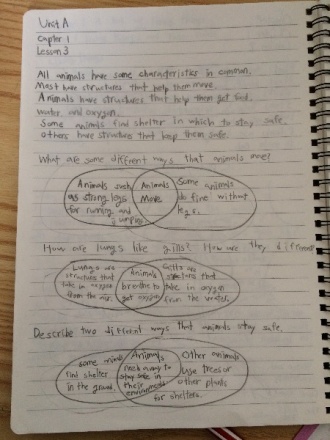 Unit A
Capter 1
Lesson 3
All animals have some characteristics in common.
Most have structures that help them move.
Animals have structures that help them get food,
water and oxygen.
Some animals find shelter in which to stay safe.
Others have structure that keep them safe.
What are some different ways that animals move?
Animals such
as strong legs
for running and
jumping
Animals
Move
Some animals
do fine without
legs.
How are lungs like gills? How are they different
Lungs are
structures that
take in oxygen
from the air.
Animals
breathe to
get oxygen
Gills are
structures that
take in oxygen
from the water.
Describe two different ways that animals stay safe.
some animals
find shelter
in the ground.
Animals
stay safe in
their
environment
Other animals
use trees or
other plants
for shelters.